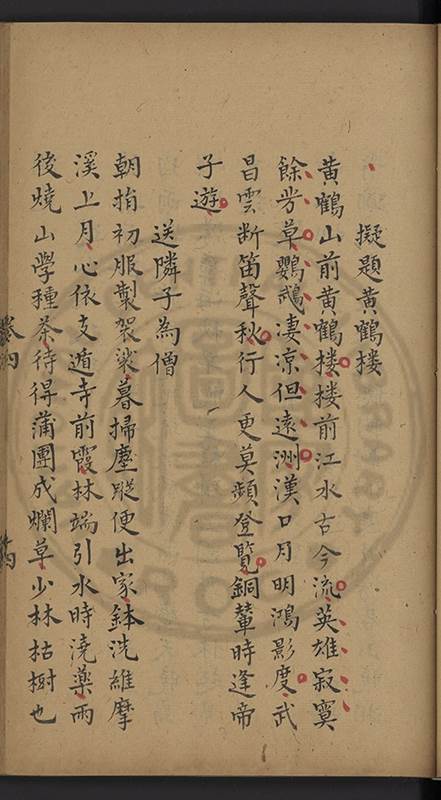 擬題黃鶴樓
黃鶴山前黃鶴樓樓前江水古今流英雄寂寞
餘芳草鸚鵡凄凉但遠洲漢口月明鴻影度武
昌雲断笛聲秋行人更莫頻登覽銅輦時逢帝
子遊
送隣子為僧
朝捐初服製袈裟暮掃塵蹤便出家鉢洗維摩
溪上月心依支遁寺前霞林端引水時澆藥雨
後燒山學種茶待得蒲團成爛草少林枯樹也